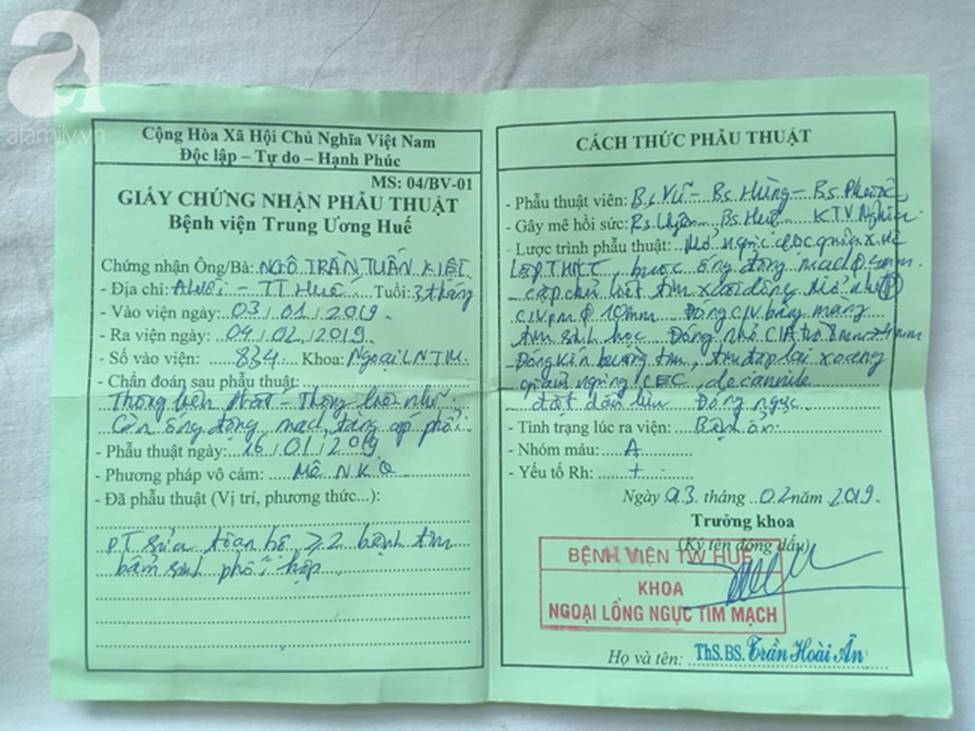 a
afamily.vn
Cộng Hòa Xã Hội Chủ Nghĩa Việt Nam
Độc lập – Tự do – Hạnh Phúc
MS: 04/BV-01
GIẤY CHỨNG NHẬN PHẪU THUẬT
Bệnh viện Trung Ương Huế
Chứng nhận Ông/Bà: NGÔ TRẦN TUẤN KIỆT
- Địa chỉ: A Lưới - TT Huế Tuổi: 3 tháng
- Vào viện ngày: 03/01/2019.
- Ra viện ngày: 04/02/2019
- Số vào viện: 834 Khoa: Ngoại LNTM.
- Chẩn đoán sau phẫu thuật:
Thông liên thất - Thông liên nhĩ
Còn ống động mạch, tăng áp phổi.
- Phẫu thuật ngày: 16/01/2019
- Phương pháp vô cảm: Mê NKQ
- Đã phẫu thuật (Vị trí, phương thức...):
PT sửa toàn bộ ≥2 bệnh tim
bẩm sinh phối hợp
CÁCH THỨC PHẪU THUẬT
- Phẫu thuật viên: Bs Vũ - Bs Hùng - Bs
- Gây mê hồi sức: Bs Bs Huế KTV
- Lược trình phẫu thuật: Mở ngực dọc giữa x. ức
Lập THNCT, buộc ống động mạch
tim xoài động. Mở nhĩ (P)
CIV 10mm Đóng CIV bằng màng
tim sinh học. Đóng nhỏ CIA từ 8mm → 4mm
Đóng kín buồng tim, tim đập lại xoang
ngừng CEC, decannule
đặt dẫn lưu Đóng ngực
- Tình trạng lúc ra viện: Bệnh ổn
- Nhóm máu: A
- Yếu tố Rh: +
Ngày 03 tháng 02 năm 2019.
Trưởng khoa
(Ký tên đóng dấu)
BỆNH VIỆN TW HUẾ
KHOA
NGOẠI LỒNG NGỰC TIM MẠCH
Họ và tên: ThS.BS. Trần Hoài Ân